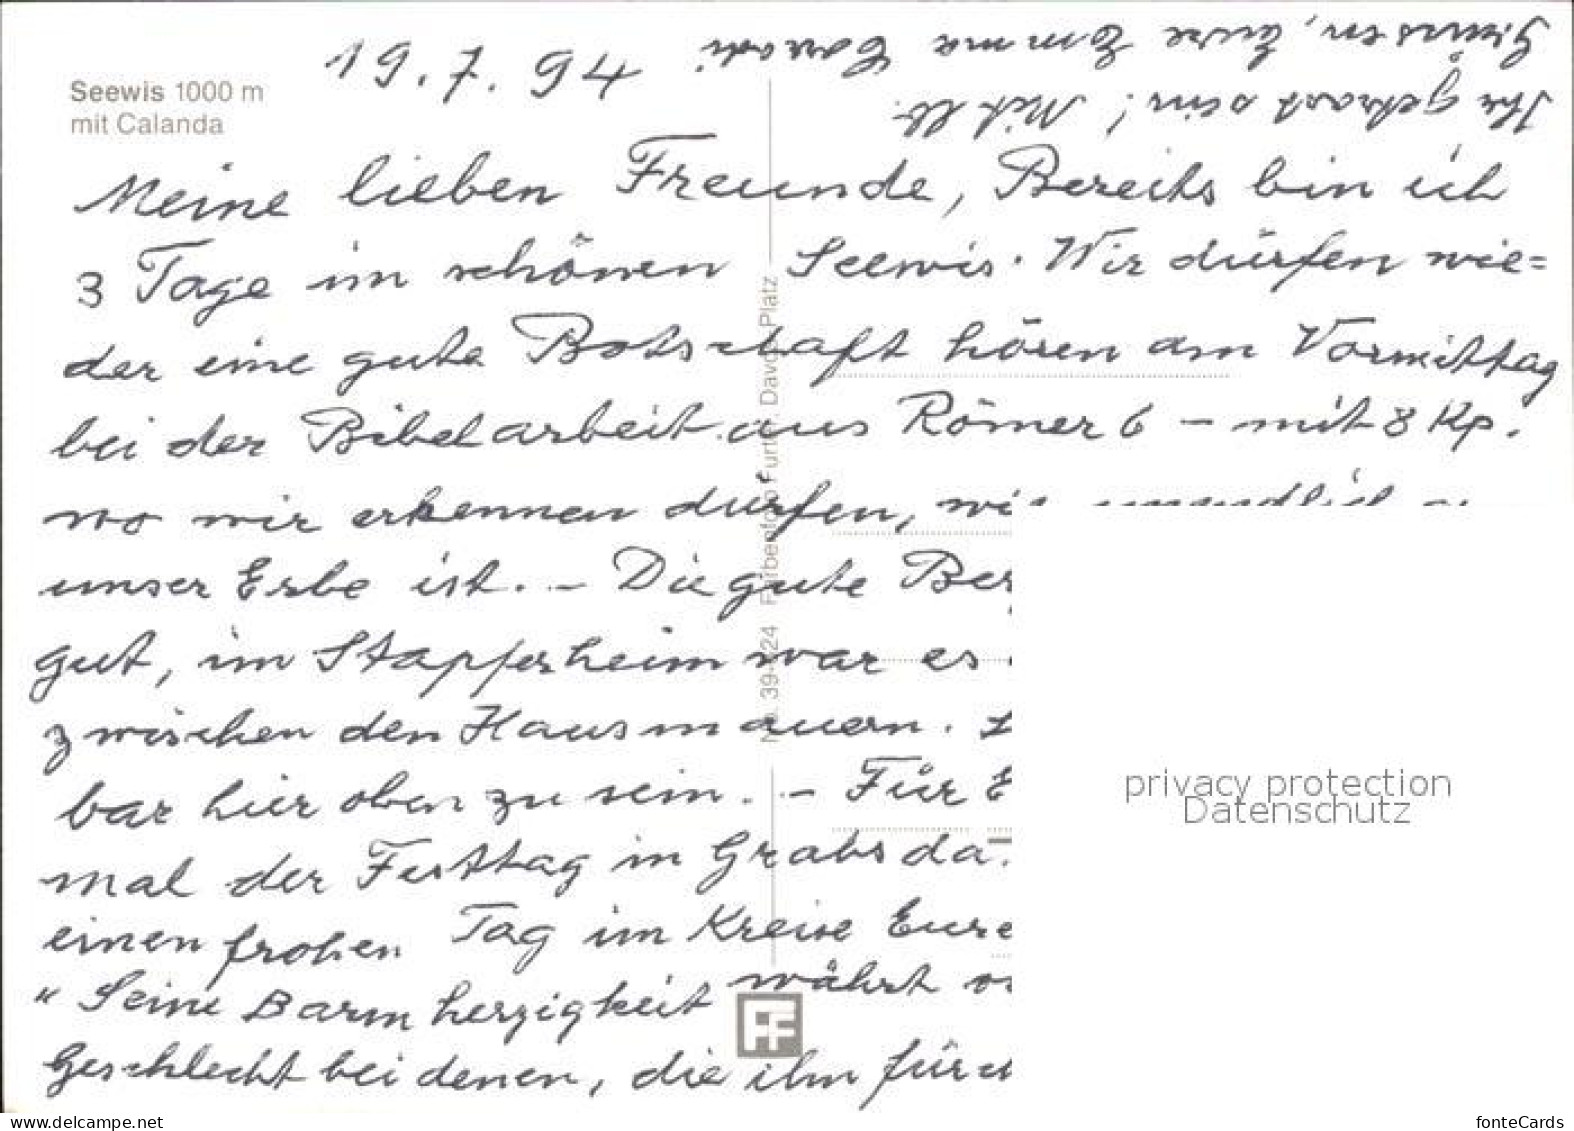 Seewis 1000 m
mit Calanda
19.7.94
Meine lieben Freunde, Bereits bin ich
3 Tage im schönen Seewis. Wir dürfen wie=
der eine gute Botschaft hören am Vormittag
bei der Bibelarbeit aus Römer 6 – mit 8 Kp.
wo wir erkennen dürfen, wie unendlich
unser Erbe ist. – Die gute
gut, im Stapferheim war es
zwischen den Hausmauern.
bar hier oben zu sein. – Für
mal der Festtag in Grabs da.
einen frohen Tag im Kreise Eure
"Seine Barmherzigkeit währt
Geschlecht bei denen, die ihn
Ihr getrost sein! Mit lb.
Grüssen, Eure Emma
No. 39-624 Farbenfoto Furter, Davos-Platz
FF
privacy protection
Datenschutz
delcampe.net
fonteCards